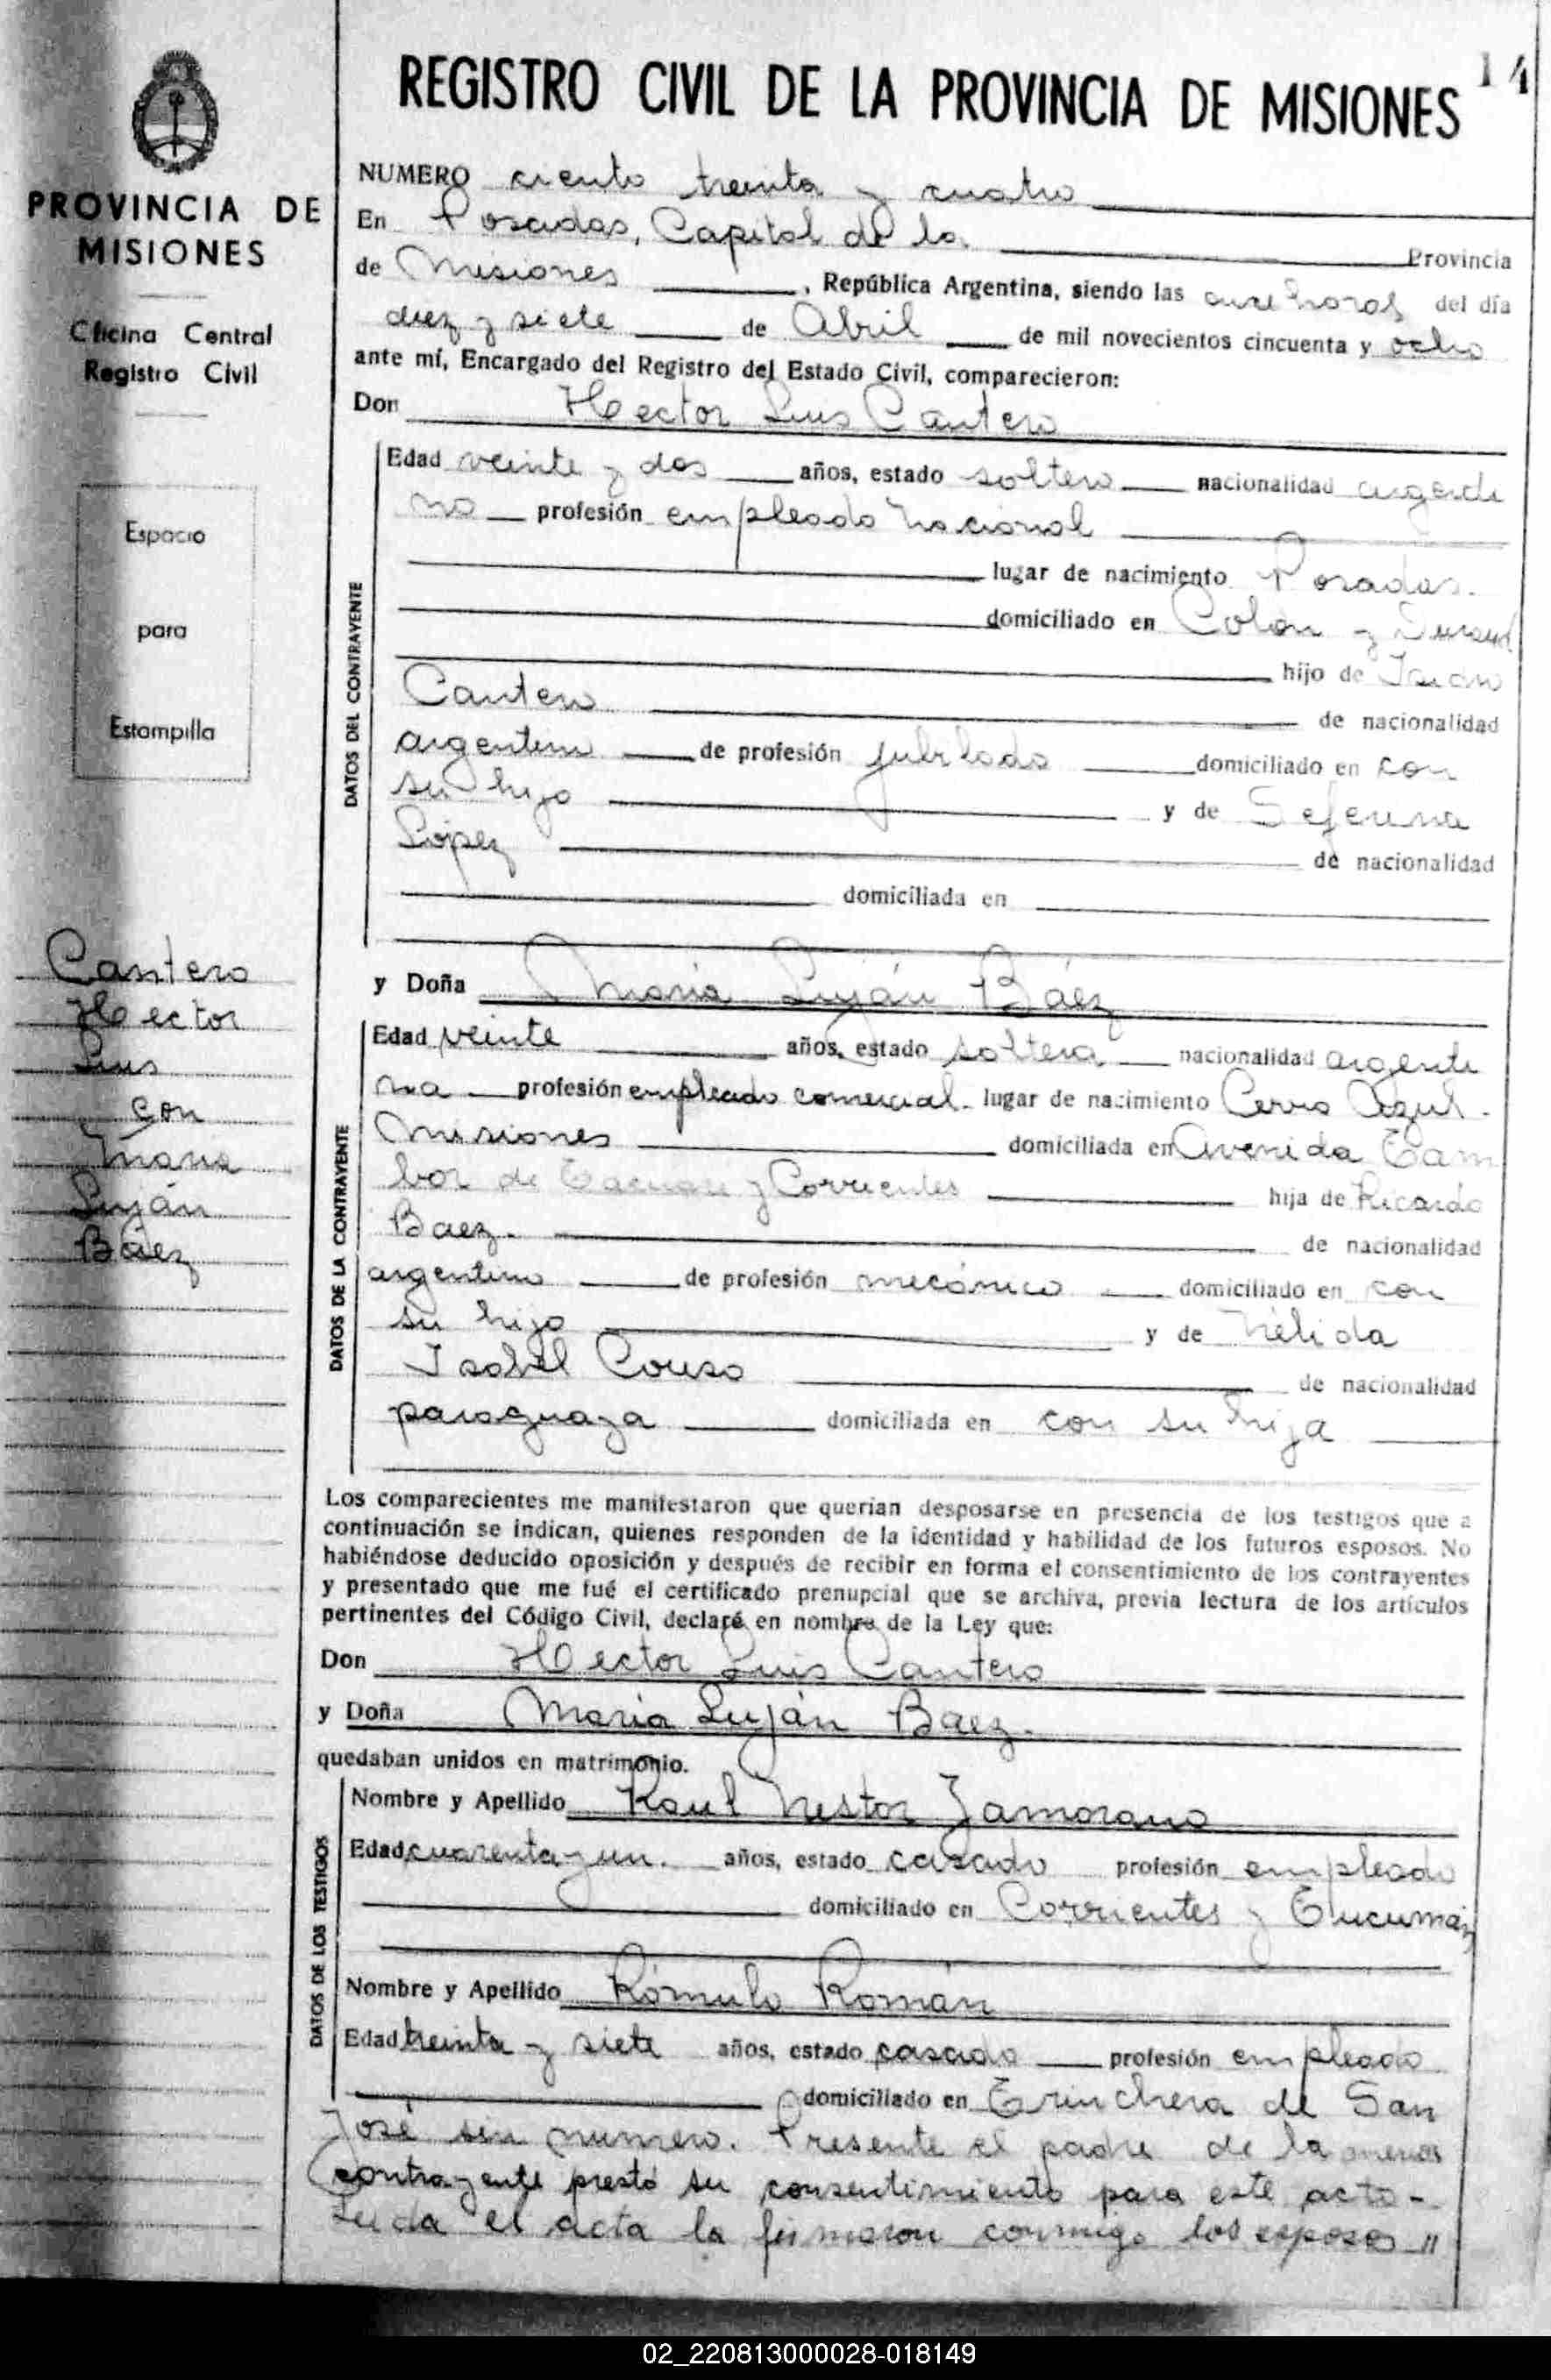 14
REGISTRO CIVIL DE LA PROVINCIA DE MISIONES
PROVINCIA DE
MISIONES
Oficina Central
Registro Civil
Espacio
para
Estampilla
Cantero
Hector
Luis
con
Maria
Luján
Báez
NUMERO ciento treinta y cuatro
En Posadas, Capital de la Provincia
de Misiones, República Argentina, siendo las once horas del día
diez y siete de Abril de mil novecientos cincuenta y ocho
ante mí, Encargado del Registro del Estado Civil, comparecieron:
Don Hector Luis Cantero
DATOS DEL CONTRAYENTE
Edad veinte y dos años, estado soltero nacionalidad argenti
no profesión empleado nacional
lugar de nacimiento Posadas.
domiciliado en Colón y
hijo de
Cantero de nacionalidad
argentino de profesión jubilado domiciliado en con
su hijo y de Seferina
López de nacionalidad
domiciliada en
y Doña Maria Luján Báez
DATOS DE LA CONTRAYENTE
Edad veinte años, estado soltera nacionalidad argenti
na profesión empleado comercial. lugar de nacimiento Cerro Azul.
Misiones domiciliada en Avenida Tam
bor de Tacuari y Corrientes hija de Ricardo
Baez. de nacionalidad
argentino de profesión mecánico domiciliado en con
su hija y de Nélida
Isabel Couso de nacionalidad
paraguaya domiciliada en con su hija
Los comparecientes me manifestaron que querían desposarse en presencia de los testigos que a
continuación se indican, quienes responden de la identidad y habilidad de los futuros esposos. No
habiéndose deducido oposición y después de recibir en forma el consentimiento de los contrayentes
y presentado que me fué el certificado prenupcial que se archiva, previa lectura de los artículos
pertinentes del Código Civil, declaré en nombre de la Ley que:
Don Hector Luis Cantero
y Doña Maria Luján Baez.
quedaban unidos en matrimonio.
DATOS DE LOS TESTIGOS
Nombre y Apellido Raul Nestor Zamorano
Edad cuarenta y un. años, estado casado profesión empleado
domiciliado en Corrientes y Tucumán
Nombre y Apellido Rómulo Román
Edad treinta y siete años, estado casado profesión empleado
domiciliado en Trinchera de San
José sin numero. Presente el padre de la menor
contrayente prestó su consentimiento para este acto-
Leida el acta la firmaron conmigo los esposos "
02_220813000028-018149